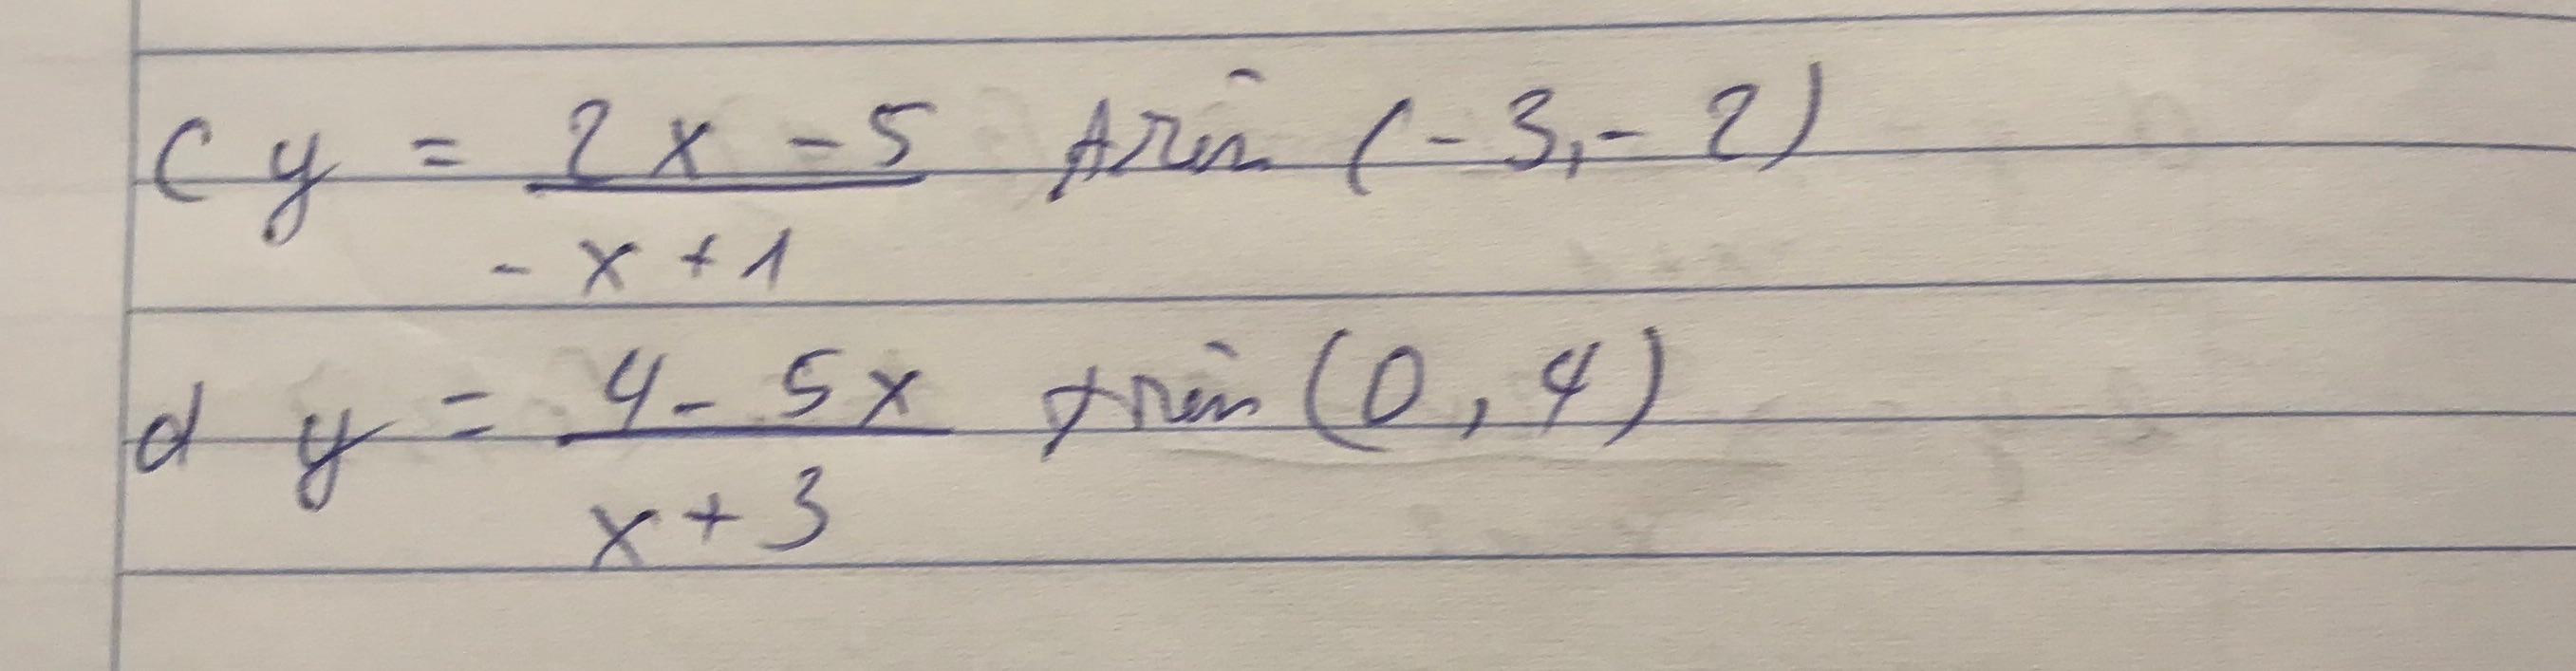 c y = 2x - 5 trên (-3,-2)
- x + 1
d y = 4 - 5x trên (0,4)
x + 3